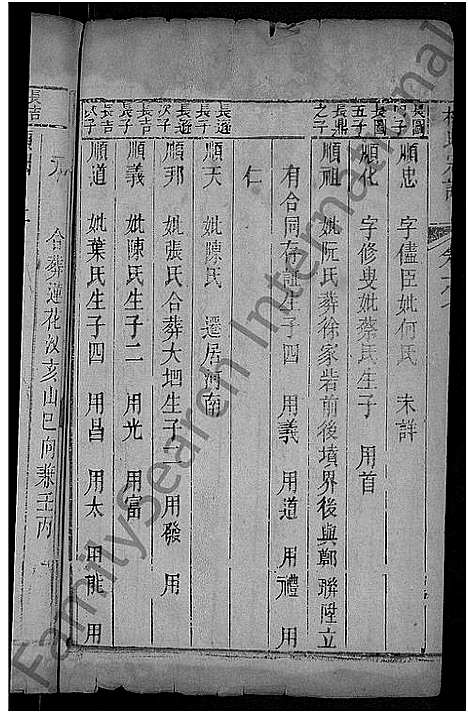 長圖四子 順忠 字儘臣妣何氏 未詳
長圖五子 順化 字修叟妣蔡氏生子 用首
長鼎之子 順祖 妣阮氏葬徐家砦前後墳界後與鄭聯陞立
有合同存証生子四 用義 用道 用禮 用
仁
長遜長子 順天 妣陳氏 遷居河南
長遜次子 順邦 妣張氏合葬大垇生子二 用發 用
長吉長子 順義 妣陳氏生子二 用光 用富
長吉次子 順道 妣葉氏生子四 用昌 用太 用龍 用
長吉
合葬蓮花汊亥山巳向兼壬丙
FamilySearch International